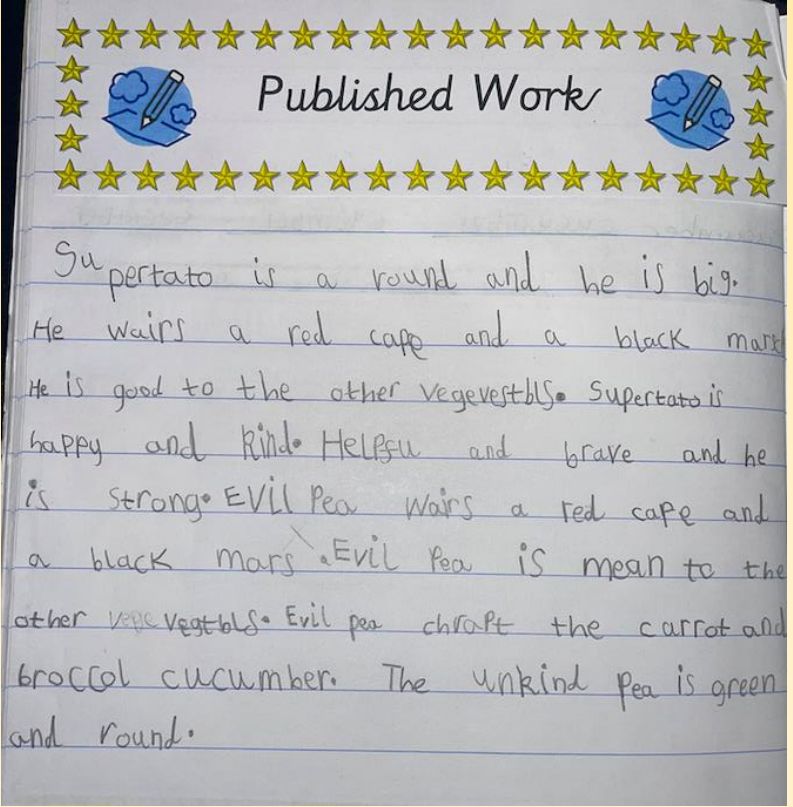 Published Work
Supertato is a round and he is big.
He wairs a red cape and a black mark
He is good to the other vegevestbls. Supertato is
happy and kind. Helpfu and brave and he
is strong. Evil Pea wairs a red cape and
a black mars. Evil Pea is mean to the
other vegtbls. Evil pea chrapt the carrot and
broccol cucumber. The unkind Pea is green
and round.